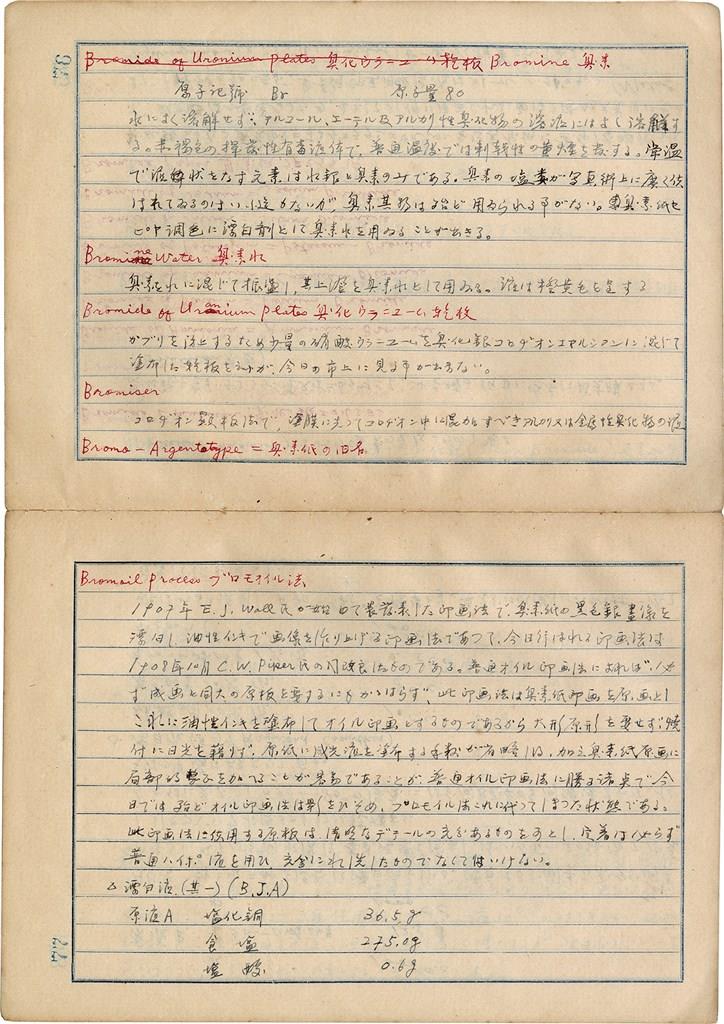 Bromide of Uranium plates 臭化ウラニューム乾板 Bromine 臭素
原子記號 Br 原子量 80
水によく溶解せず、アルコール、エーテル及アルカリ性臭化物の溶液にはよく溶解す
る。赤褐色の揮発性有毒液体で、普通温度では刺戟性の重煙を発する。常温
で液体状をなす元素は水銀と臭素のみである。臭素の塩素が写真術上に広く使
はれてゐるのはいふ迄もないが、臭素其物は殆ど用ゐられる事がない。臭素紙セ
ピヤ調色に漂白剤として臭素水を用ゐることが出来る。
Bromine Water 臭素水
臭素を水に混じて振盪し、其上液を臭素水として用ゐる。液は橙黄色を呈する
Bromide of Uranium plates 臭化ウラニューム乾板
カブリを防止するため少量の硝酸ウラニュームを臭化銀コロヂオンエマルションに混じて
塗布した乾板をゐふが、今日の市上に見る事が出来ない。
Bromiser
コロヂオン湿板法で、塗膜に先つてコロヂオン中に混加すべきアルカリ又は金属性臭化物の液
Bromo-Argentotype = 臭素紙の旧名
Bromoil process ブロモオイル法
1907年 E. J. Wall 氏が始めて発表した印画法で、臭素紙の黒色銀畫像を
漂白し、油性インキで画像を作り上げる印画法であつて、今日行はれる印画法は
1908年10月 C. W. Piper 氏の改良したものである。普通オイル印画法によれば、必
ず成画と同大の原板を要するにもかゝはらず、此印画法は臭素紙印画を原画とし
これに油性インキを塗布してオイル印画とするものであるから大形原形を要せず焼
付に日光を藉りず、原紙に感光液を塗布する手数が省略し得、加之臭素紙原画に
局部的をかへることが容易であることが、普通オイル印画法に勝る諸点で今
日では殆どオイル印画法は影をひそめ、ブロモイル法これに代つてしまつた状態である。
此印画法に使用する原板は、清明なデテールの充分あるものをよしとし、定着は必らず
普通ハイポ液を用ひ、完全に水洗したものでなくてはいけない。
△漂白液(其一) (B.J.A)
原液A 塩化銅 36.5g
食塩 275.0g
塩酸 0.6g